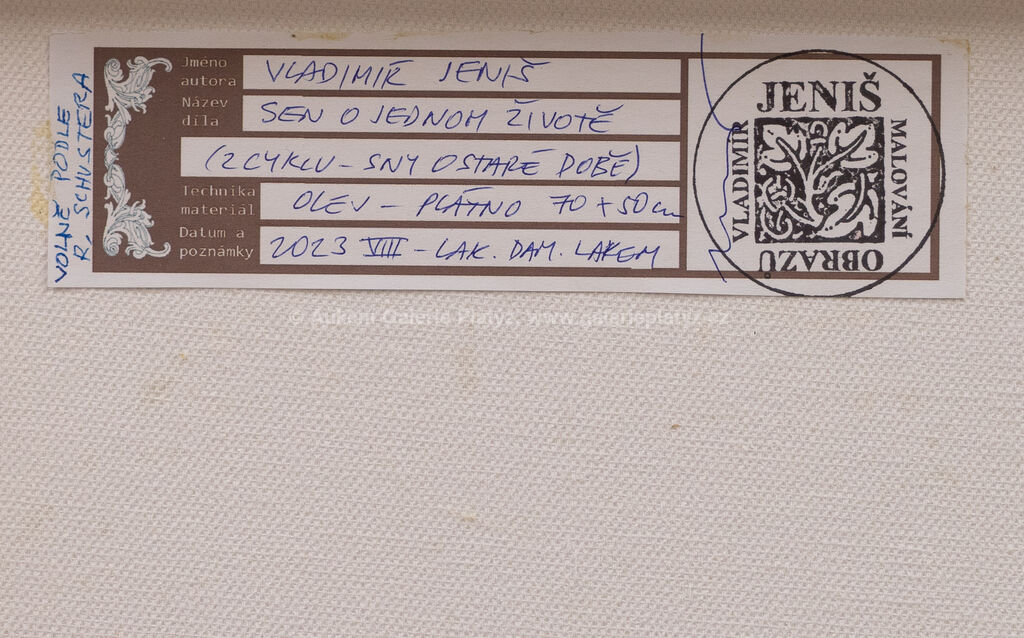 VOLNĚ PODLE
R. SCHUSTERA
Jméno autora VLADIMÍR JENIŠ
Název díla SEN O JEDNOM ŽIVOTĚ
(Z CYKLU - SNY O STARÉ DOBĚ)
Technika materiál OLEJ - PLÁTNO 70 + 50 cm
Datum a poznámky 2023 VIII - LAK. DAM. LAKEM
JENIŠ
VLADIMÍR
MALOVÁNÍ
OBRAZŮ
© Aukční Galerie Platýz, www.galerieplatyz.cz